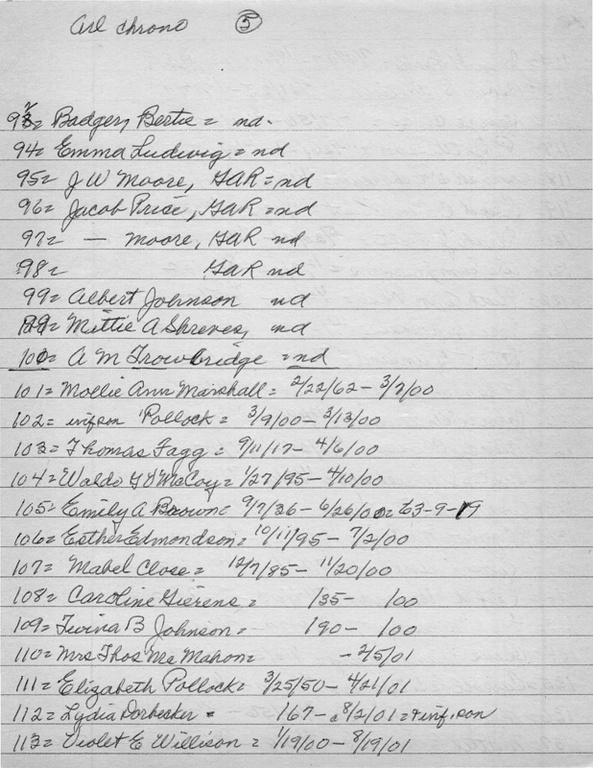 Arl chrono ⑤
93= Badger, Bertie = nd.
94= Emma Ludwig = nd
95= J W Moore, GAR = nd
96= Jacob Prise, GAR = nd
97= — Moore, GAR nd
98= GAR nd
99= Albert Johnson nd
Mittie A Shreves, nd
100= A M Trowbridge = nd
101= Mollie Ann Marshall = 2/22/62 - 3/7/00
102= inf. son Pollock = 3/9/00 - 3/13/00
103= Thomas Fagg = 9/11/17 - 4/6/00
104= Waldo McCoy = 1/27/95 - 4/10/00
105= Emily A Brown = 9/7/36 - 6/26/00 = 63-9-19
106= Esther Edmondson = 10/11/95 - 7/2/00
107= Mabel Close = 12/7/85 - 11/20/00
108= Caroline Gierens = /35 - /00
109= Twina B Johnson = /90 - /00
110= Mrs Thos Mc Mahon = - 2/5/01
111= Elizabeth Pollock = 3/25/50 - 4/21/01
112= Lydia Dorbecker = /67 - 8/2/01 = + inf. son
113= Violet E Willison = 1/19/00 - 8/19/01